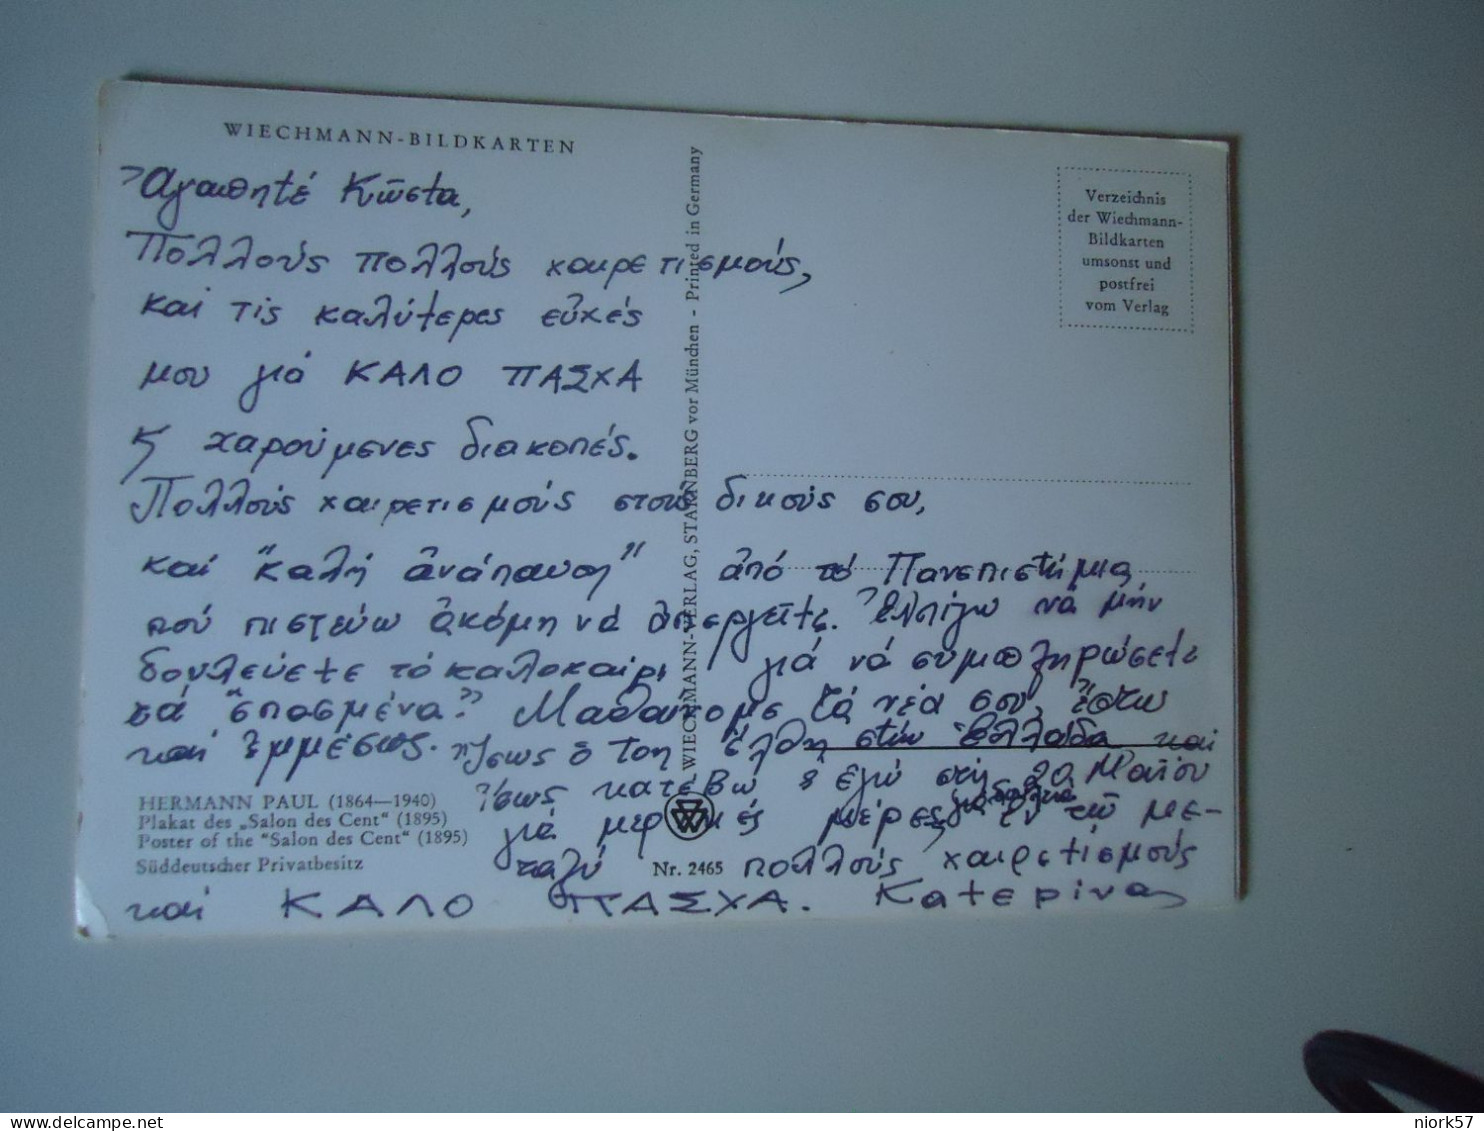 WIECHMANN-BILDKARTEN
Ἀγαπητέ Κῶστα,
Πολλούς πολλούς χαιρετισμούς,
καί τίς καλύτερες εὐχές
μου γιά ΚΑΛΟ ΠΑΣΧΑ
ϗ χαρούμενες διακοπές.
Πολλούς χαιρετισμούς στούς δικούς σου,
καί "καλή ἀνάπαυση" ἀπό τό Πανεπιστήμιο,
πού πιστεύω ἀκόμη νά ἀπεργεῖτε. Ἐλπίζω νά μήν
δουλεύετε τό καλοκαίρι γιά νά συμπληρώσετε
τά "σπασμένα". τά νέα σου, ἔστω
καί ἐμμέσως. Ἴσως ὁ ἔλθη στήν Ἑλλάδα καί
ἴσως κατεβῶ ϗ ἐγώ στίς 20 Μαΐου
γιά μερικές μέρες,
πολλούς χαιρετισμούς
καί ΚΑΛΟ ΠΑΣΧΑ. Κατερίνα
WIECHMANN-VERLAG, STARNBERG vor München - Printed in Germany
Verzeichnis
der Wiechmann-
Bildkarten
umsonst und
postfrei
vom Verlag
HERMANN PAUL (1864—1940)
Plakat des „Salon des Cent“ (1895)
Poster of the “Salon des Cent“ (1895)
Süddeutscher Privatbesitz
Nr. 2465
niork57